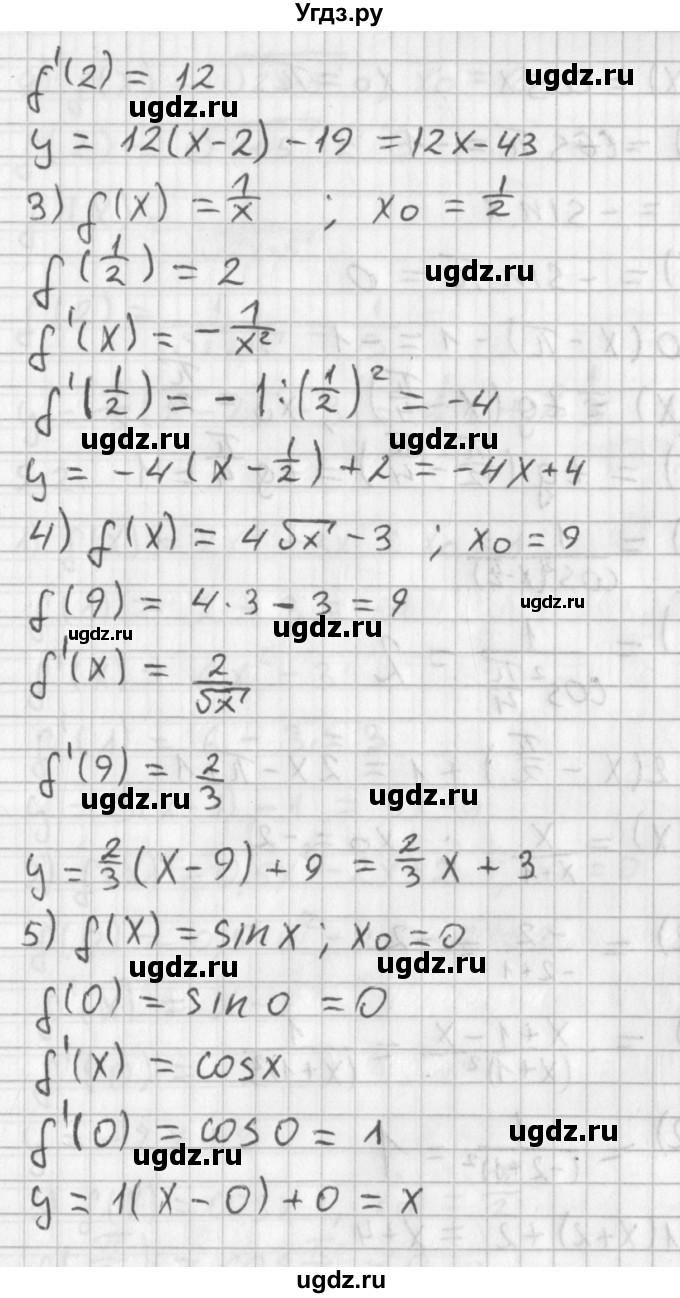 Угдз.ру
f'(2) = 12
ugdz.ru
ugdz.ru
y = 12(x-2)-19 = 12x-43
3) f(x) = 1/x ; x₀ = 1/2
f(1/2) = 2
ugdz.ru
f'(x) = -1/x²
f'(1/2) = -1:(1/2)² = -4
ugdz.ru ugdz.ru
y = -4(x-1/2)+2 = -4x+4
4) f(x) = 4√x -3 ; x₀ = 9
f(9) = 4·3-3 = 9
ugdz.ru
ugdz.ru ugdz.ru
f'(x) = 2/√x
f'(9) = 2/3
ugdz.ru ugdz.ru
y = 2/3(x-9)+9 = 2/3 x + 3
5) f(x) = sin x ; x₀ = 0
ugdz.ru ugdz.ru
f(0) = sin 0 = 0
f'(x) = cos x
f'(0) = cos 0 = 1
ugdz.ru
ugdz.ru
y = 1(x-0)+0 = x
ugdz.ru